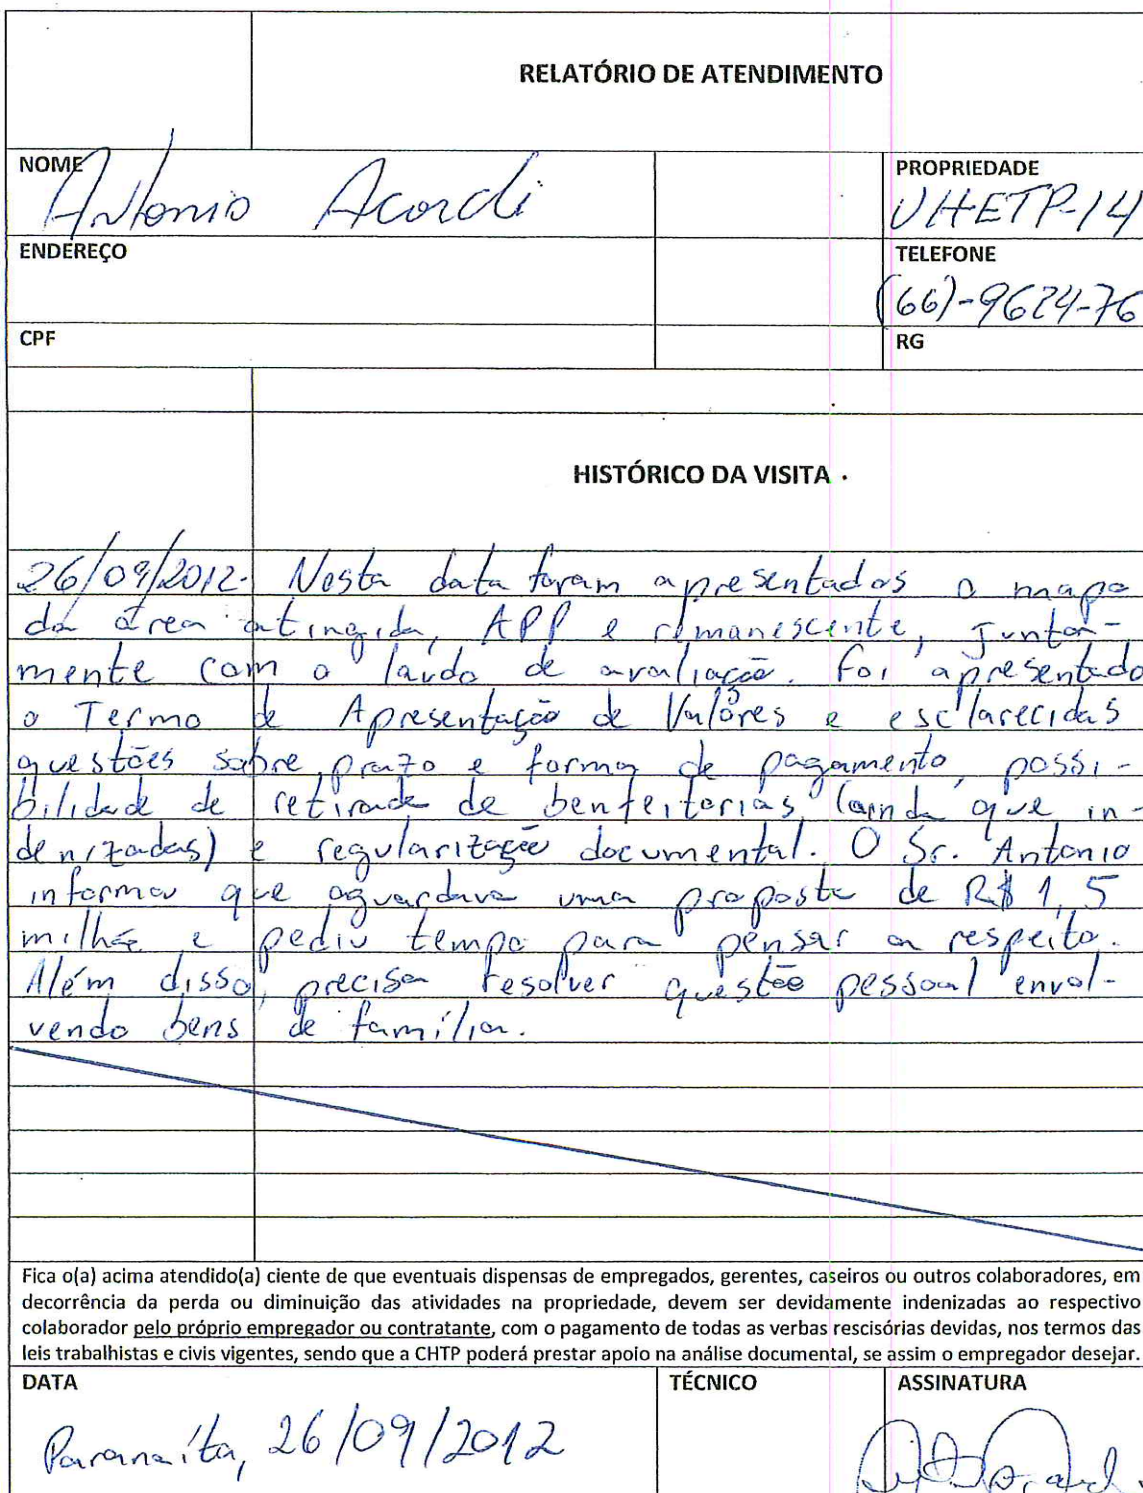 RELATÓRIO DE ATENDIMENTO
NOME
Antonio Acordi
PROPRIEDADE
UHETP-14
ENDEREÇO
TELEFONE
(66)-9624-76
CPF
RG
HISTÓRICO DA VISITA
26/09/2012- Nesta data foram apresentados o mapa
da área atingida, APP e remanescente, junta-
mente com o laudo de avaliação. Foi apresentado
o Termo de Apresentação de Valores e esclarecidas
questões sobre prazo e forma de pagamento, possi-
bilidade de retirada de benfeitorias (ainda que in-
denizadas) e regularização documental. O Sr. Antonio
informou que aguardava uma proposta de R$ 1,5
milhão e pediu tempo para pensar a respeito.
Além disso, precisa resolver questão pessoal envol-
vendo bens de família.
Fica o(a) acima atendido(a) ciente de que eventuais dispensas de empregados, gerentes, caseiros ou outros colaboradores, em
decorrência da perda ou diminuição das atividades na propriedade, devem ser devidamente indenizadas ao respectivo
colaborador pelo próprio empregador ou contratante, com o pagamento de todas as verbas rescisórias devidas, nos termos das
leis trabalhistas e civis vigentes, sendo que a CHTP poderá prestar apoio na análise documental, se assim o empregador desejar.
DATA
TÉCNICO
ASSINATURA
Paranaíta, 26/09/2012